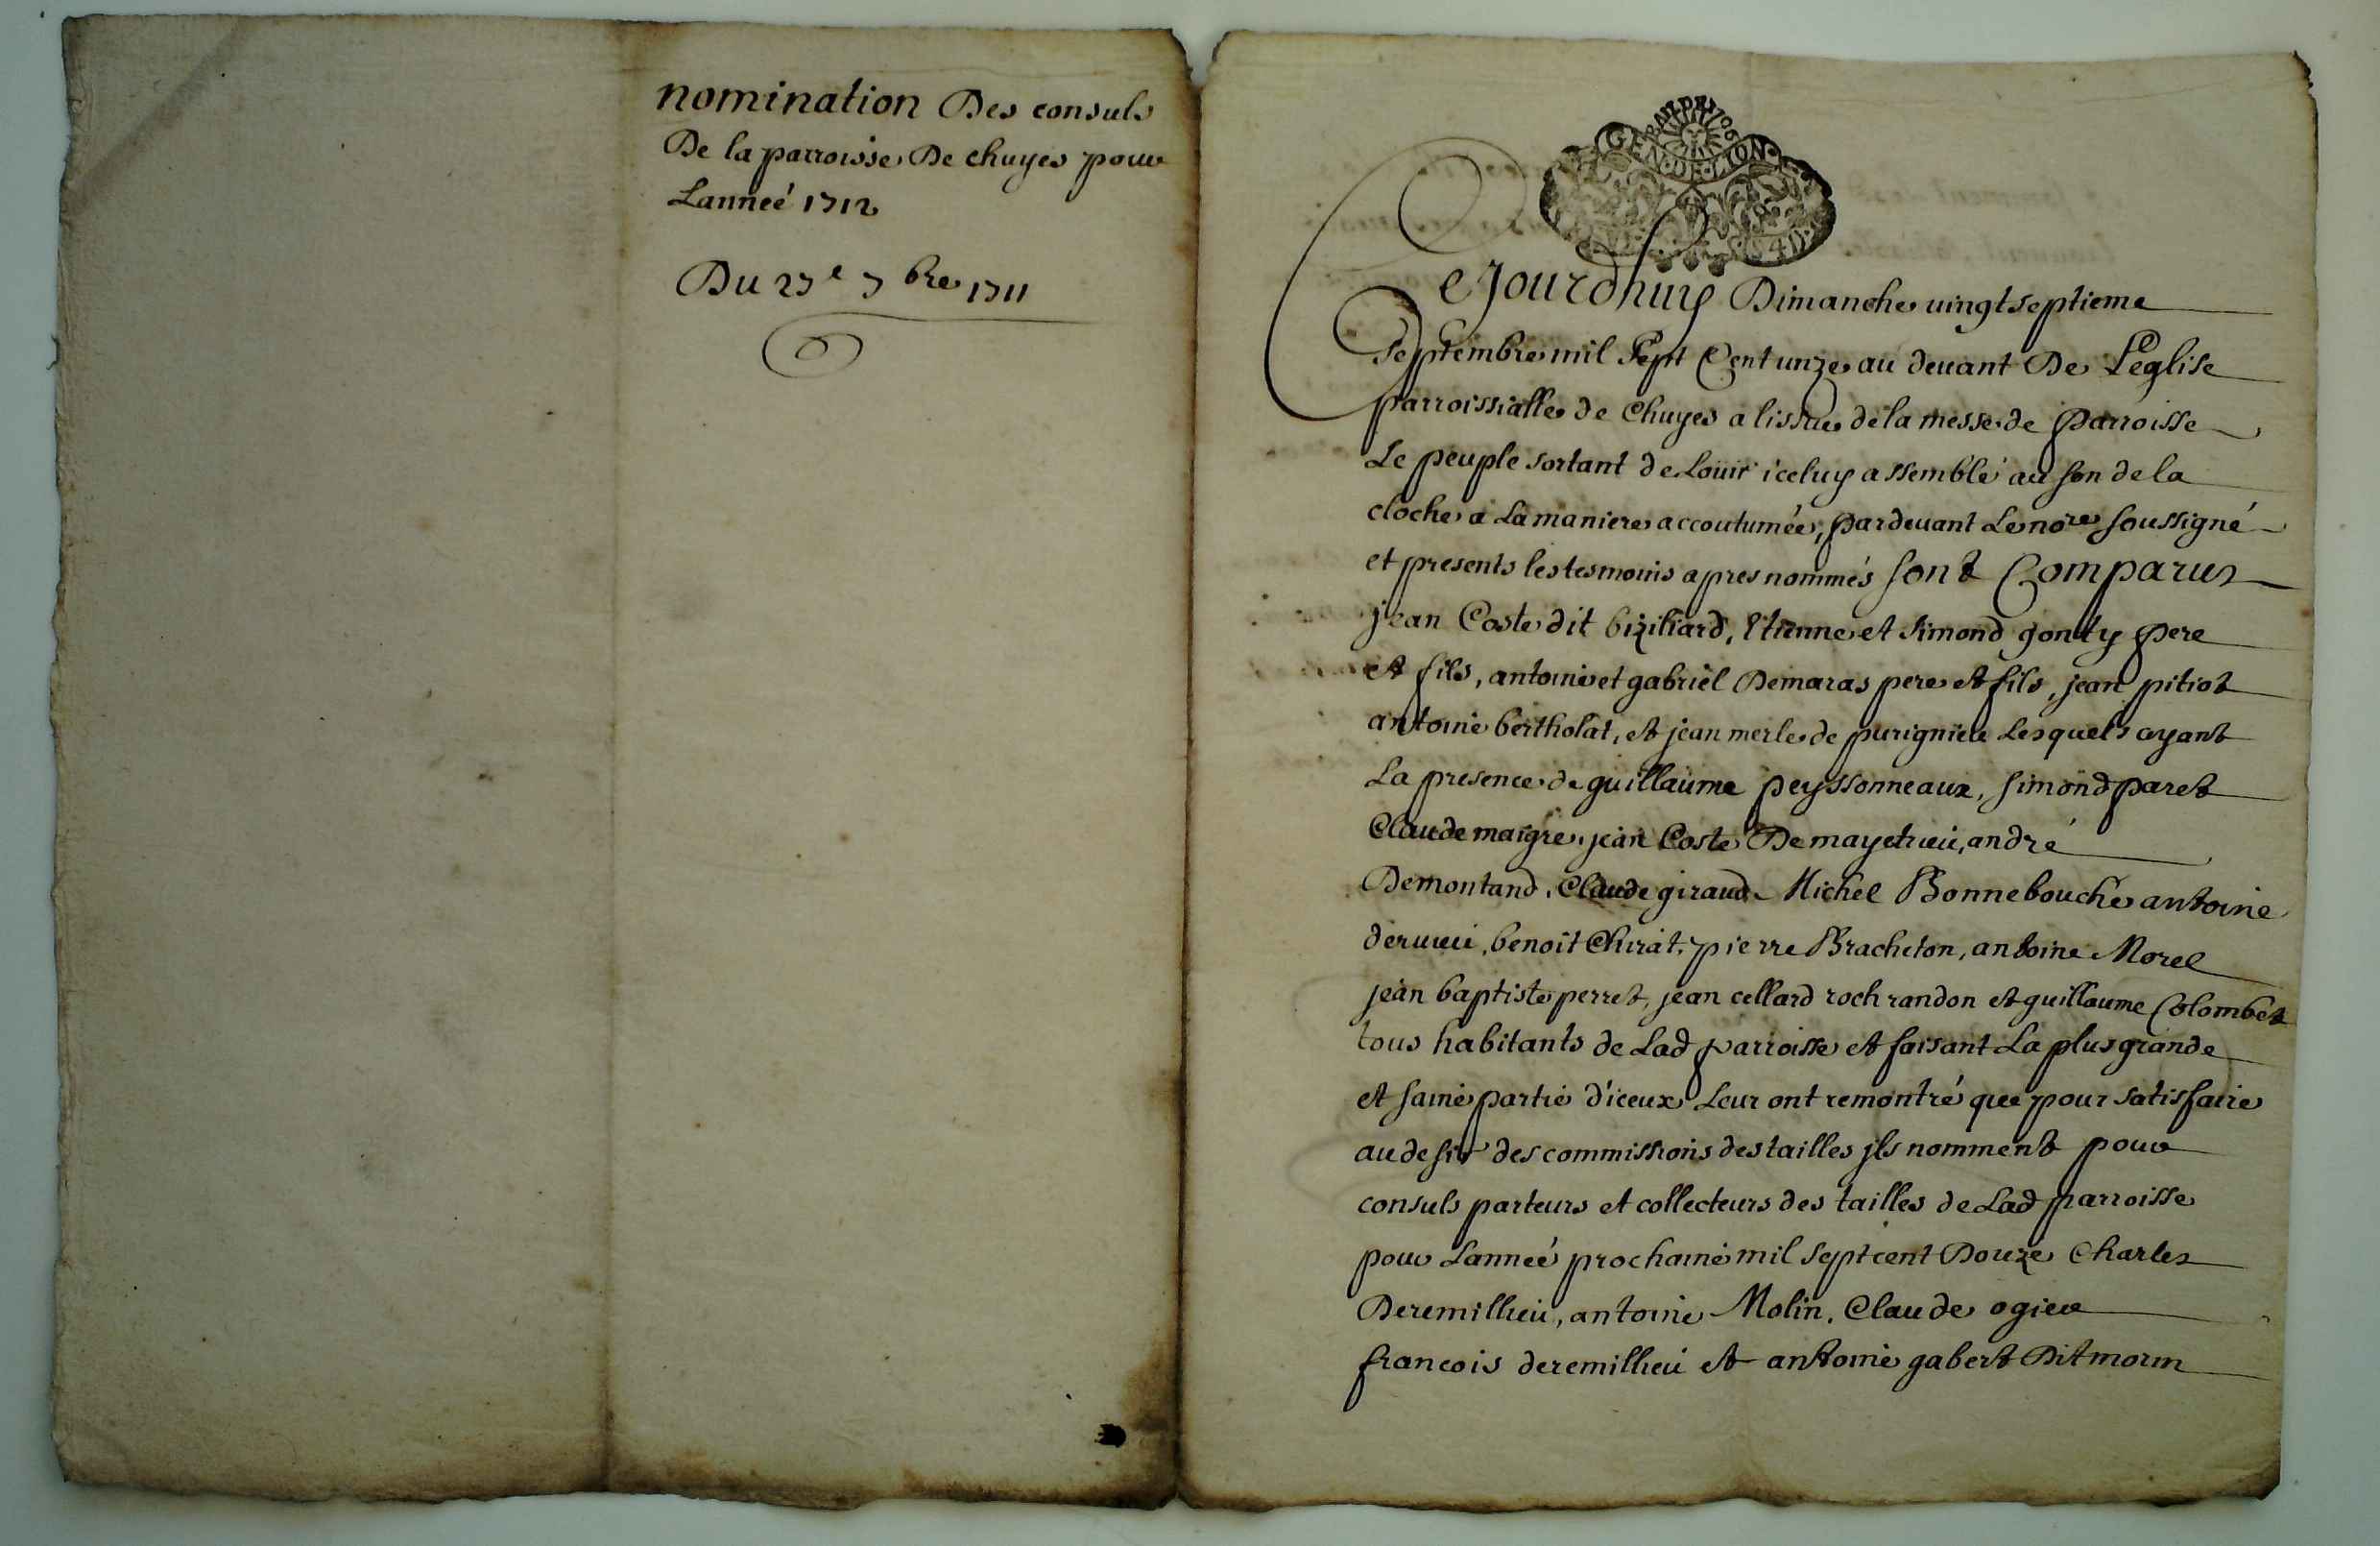 nomination Des consuls
De la parroisse De chuyes pour
Lanneé 1712
Du 27e 7bre 1711
GEN DE LION
Cejourdhuy Dimanche vingt septieme
septembre mil sept Cent unze au devant De Leglise
parroissialle de Chuyes a lissue de la messe de parroisse
Le peuple sortant de Louir iceluy assemblé au son de la
cloche a La maniere accoutumée, pardevant Le nore soussigné
et presents les tesmoins apres nommés sont Comparus
jean Coste dit biziliard, Etienne et simond gonty pere
et fils, antoine et gabriel Demaras pere et fils, jean pitiot
antoine bertholat, et jean merle de purigniere Lesquels ayant
La presence de guillaume peyssonneaux, simond paret
Claude maigre, jean Coste De mayetrieu, andré
Demontand, Claude giraud Michel Bonnebouche antoine
derieu, benoit Chirat, pierre Bracheton, antoine Morel
jean baptiste perret, jean cellard roch randon et guillaume Colombet
tous habitants de Lad parroisse et faisant La plus grande
et saine partie d'iceux Leur ont remontré que pour satisfaire
au desir des commissions des tailles jls nomment pour
consuls parteurs et collecteurs des tailles de Lad parroisse
pour Lanneé prochaine mil sept cent Douze Charles
Deremillieu, antoine Molin, Claude ogier
francois deremillieu et antoine gabert Dit morin